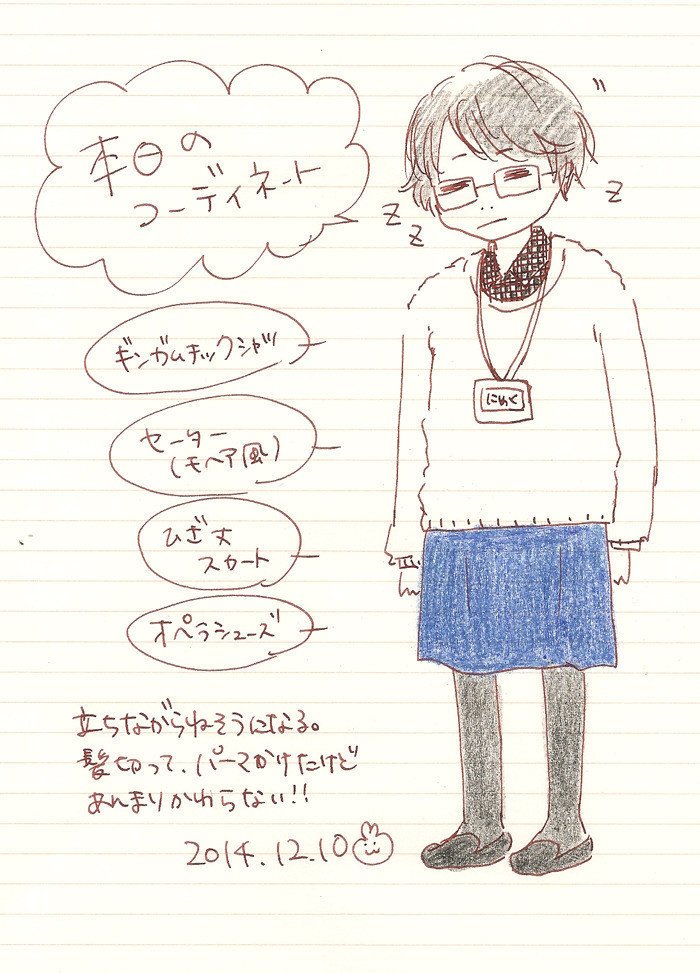 本日の
コーディネート
Z
Z
Z
ギンガムチェックシャツ
セーター
(モヘア風)
ひざ丈
スカート
オペラシューズ
立ちながらねそうになる。
髪切って、パーマかけたけど
あんまりかわらない!!
2014.12.10